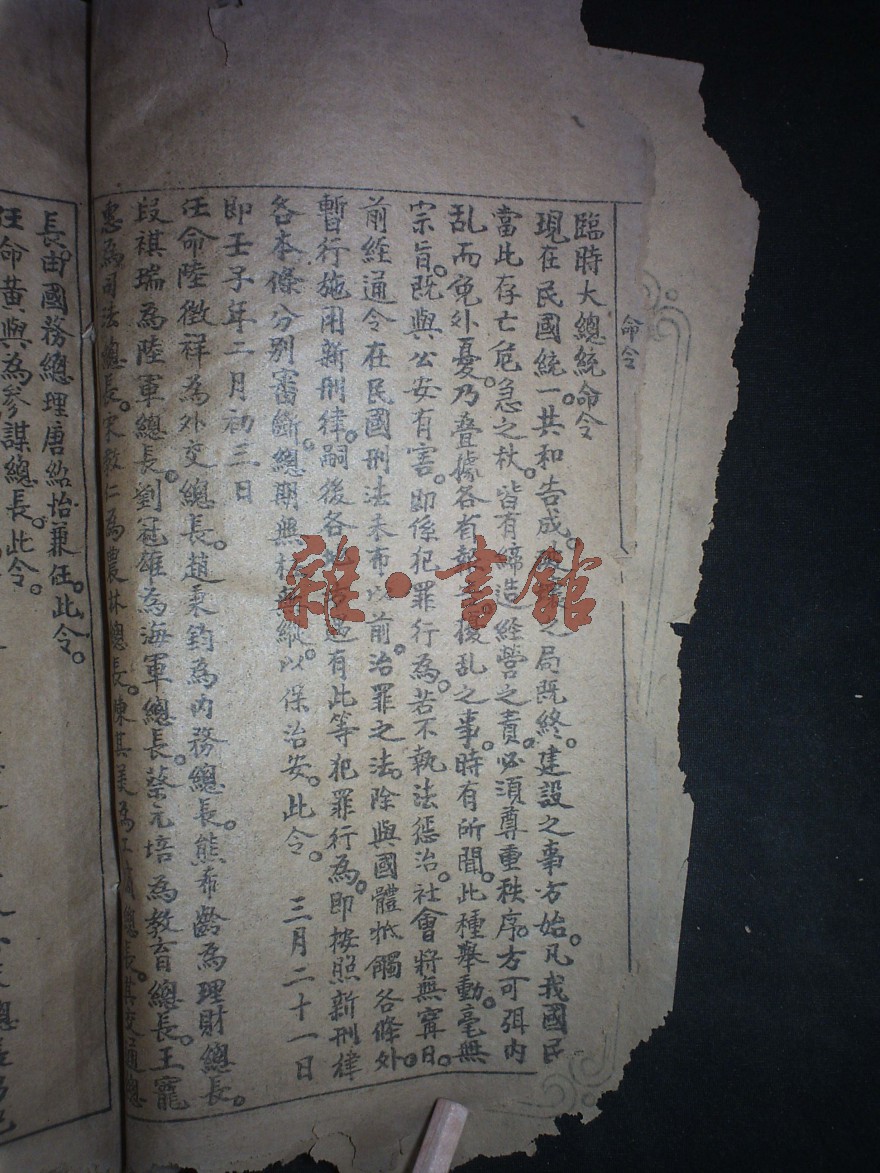 命令
臨時大總統命令
現在民國統一。共和告成。之局既終。建設之事方始。凡我國民
當此存亡危急之秋。皆有締造經營之責。必須尊重秩序。方可弭內
乱而免外憂。乃叠據各省乱之事。時有所聞。此種舉動。毫無
宗旨。既與公安有害。即係犯罪行為。若不執法惩治。社會將無甯日。
前經通令在民國刑法未布以前。治罪之法。除與國體抵觸各條外。
暫行施用新刑律。嗣後各有此等犯罪行為。即按照新刑律
各本條分別審斷。總期無縱。以保治安。此令。 三月二十一日
即壬子年二月初三日
任命陸徵祥為外交總長。趙秉鈞為內務總長。熊希齡為理財總長。
段祺瑞為陸軍總長。劉冠雄為海軍總長。蔡元培為教育總長。王寵
惠為司法總長。宋教仁為農林總長。陳其美為總長。其交通總
長。由國務總理唐紹怡兼任。此令。
任命黄興為參謀總長。此令。
雜·書館